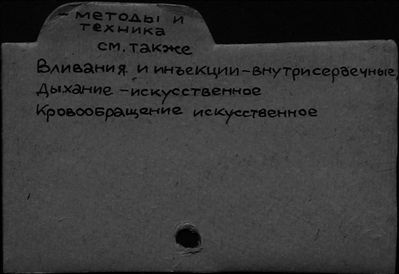 - методы и
техника
см. также
Вливания и инъекции - внутрисердечные,
Дыхание - искусственное
Кровообращение искусственное